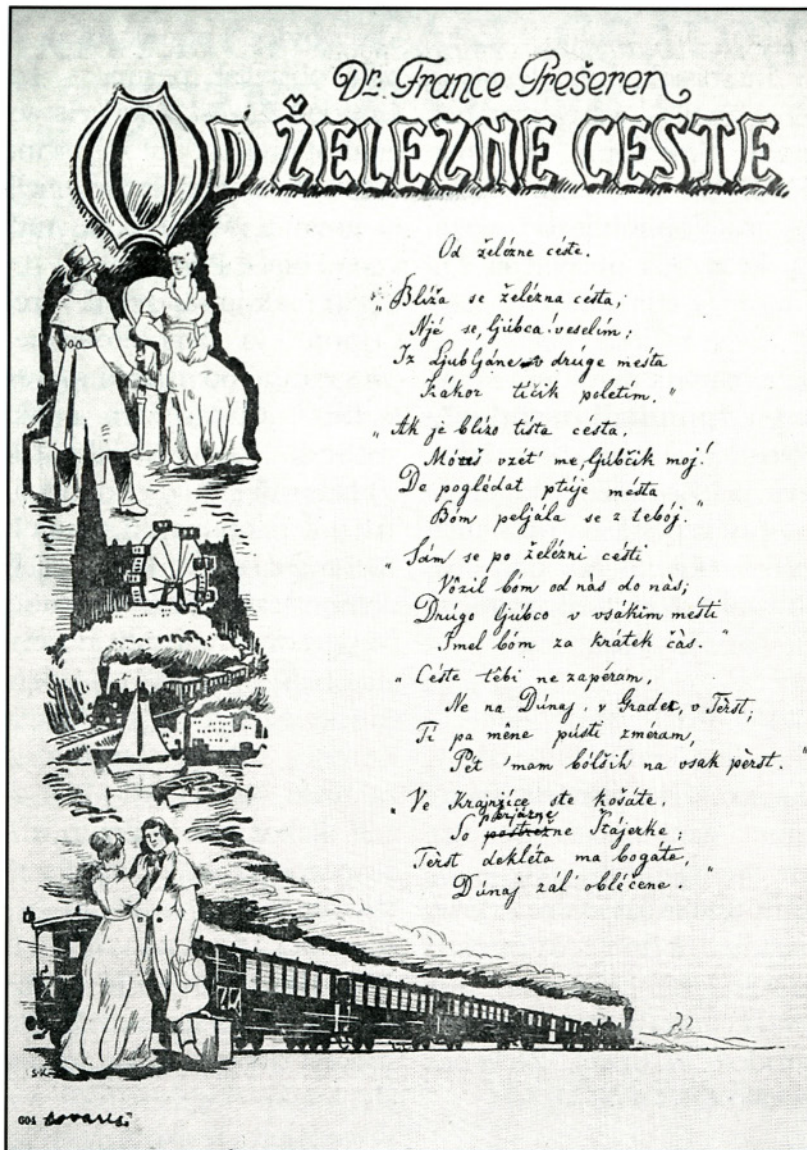 Dr. France Prešeren
OD ŽELEZNE CESTE
Od želézne céste.
„Blíža se želézna césta,
Njé se, ljúbca! veselím;
Iz Ljubljáne v drúge mésta
Kákor tíčik poletím."
„Ak je blízo tísta césta,
Móreš vzét' me, ljúbčik moj!
De poglédat ptúje mésta
Bóm peljála se z tebój."
„Sám se po želézni césti
Vôzil bóm od nàs do nàs;
Drúgo ljúbco v vsákim mésti
Imel bóm za krátek čàs."
„Céste têbi ne zapéram,
Ne na Dúnaj, v Gradec, v Tèrst;
Tí pa mêne pústi zméram,
Pét 'mam bólših na vsak pèrst."
„Ve Krajnzíce ste košáte,
perjázne
So ne Štájerke;
Tèrst dekléta ma bogáte,
Dúnaj zál' obléčene."
S.K
604